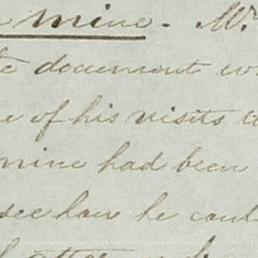 mine. Mr
document
of his visits
mine had been
see how he could